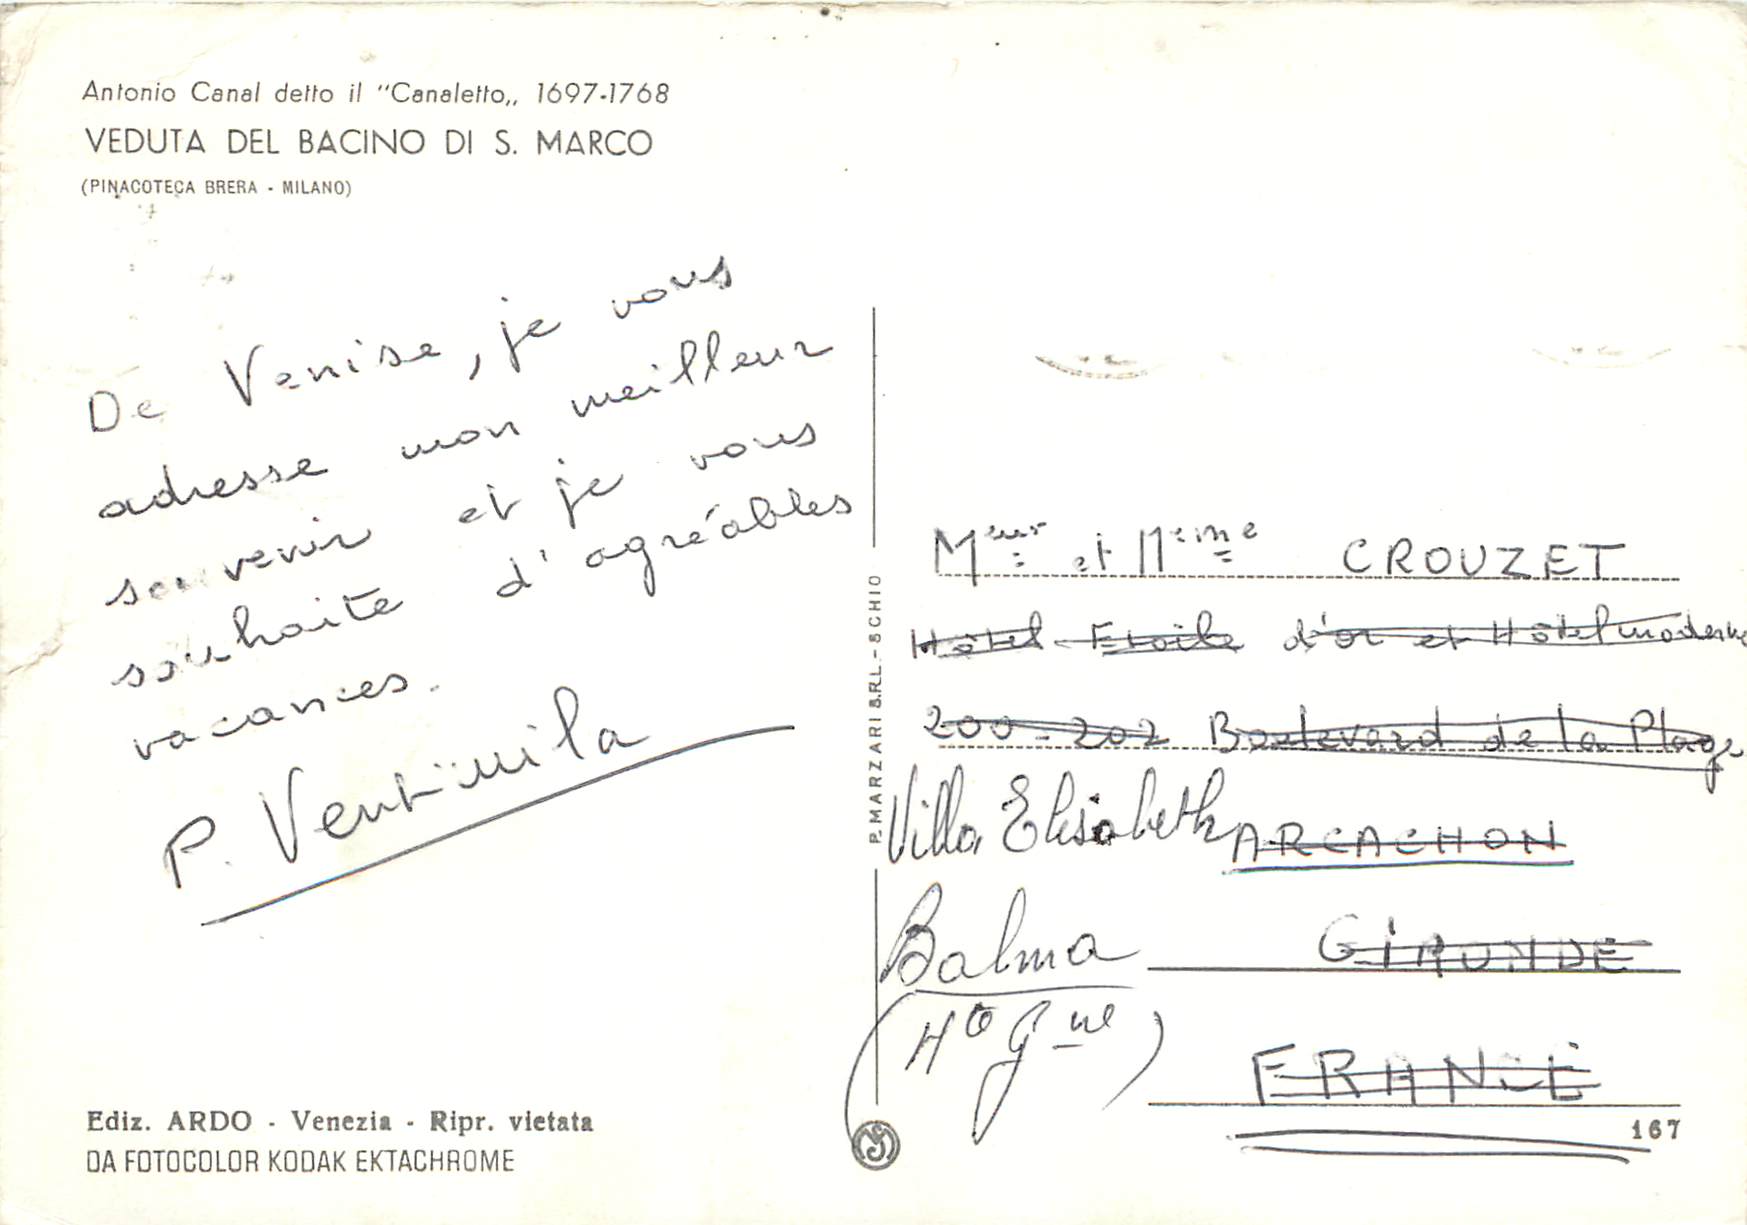 Antonio Canal detto il "Canaletto„ 1697-1768
VEDUTA DEL BACINO DI S. MARCO
(PINACOTECA BRERA - MILANO)
De Venise, je vous
adresse mon meilleur
souvenir et je vous
souhaite d'agréables
vacances.
P. Ventimila
Ediz. ARDO - Venezia - Ripr. vietata
DA FOTOCOLOR KODAK EKTACHROME
P. MARZARI S.R.L. - SCHIO
Meur et Meme CROUZET
Hôtel Etoile d'or et Hôtel moderne
200-202 Boulevard de la Plage
Villa Elisabeth ARCACHON
Balma GIRONDE
(Hte Gne) FRANCE
167